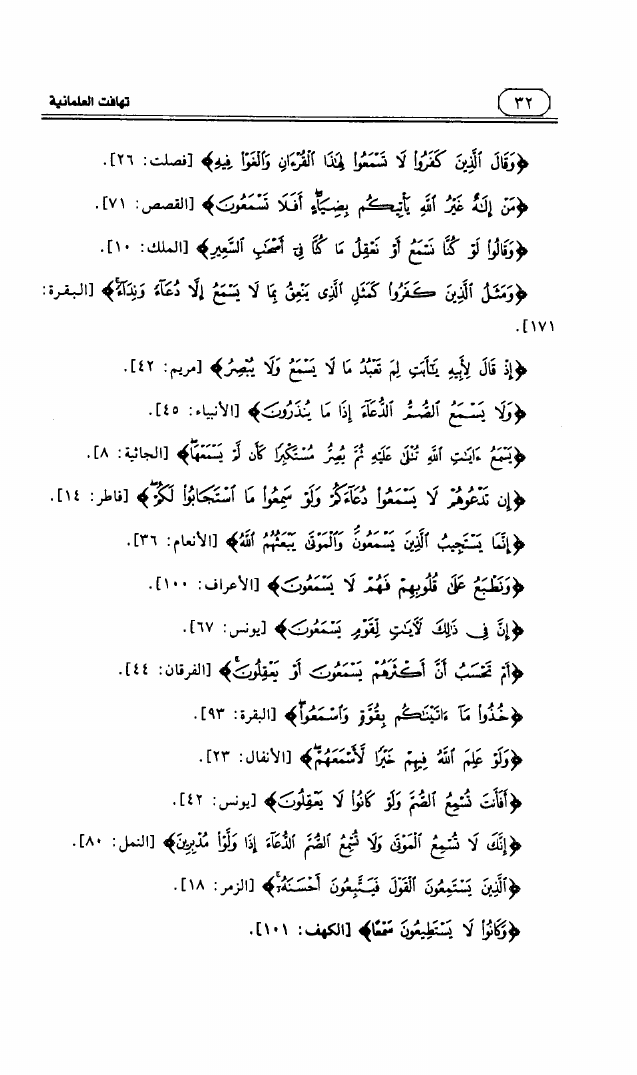 ٣٢ تهافت العلمانية
﴿وَقَالَ ٱلَّذِينَ كَفَرُوا۟ لَا تَسْمَعُوا۟ لِهَٰذَا ٱلْقُرْءَانِ وَٱلْغَوْا۟ فِيهِ﴾ [فصلت: ٢٦].
﴿مَنْ إِلَٰهٌ غَيْرُ ٱللَّهِ يَأْتِيكُم بِضِيَآءٍ ۖ أَفَلَا تَسْمَعُونَ﴾ [القصص: ٧١].
﴿وَقَالُوا۟ لَوْ كُنَّا نَسْمَعُ أَوْ نَعْقِلُ مَا كُنَّا فِىٓ أَصْحَٰبِ ٱلسَّعِيرِ﴾ [الملك: ١٠].
﴿وَمَثَلُ ٱلَّذِينَ كَفَرُوا۟ كَمَثَلِ ٱلَّذِى يَنْعِقُ بِمَا لَا يَسْمَعُ إِلَّا دُعَآءً وَنِدَآءً ۚ﴾ [البقرة:
١٧١].
﴿إِذْ قَالَ لِأَبِيهِ يَٰٓأَبَتِ لِمَ تَعْبُدُ مَا لَا يَسْمَعُ وَلَا يُبْصِرُ﴾ [مريم: ٤٢].
﴿وَلَا يَسْمَعُ ٱلصُّمُّ ٱلدُّعَآءَ إِذَا مَا يُنذَرُونَ﴾ [الأنبياء: ٤٥].
﴿يَسْمَعُ ءَايَٰتِ ٱللَّهِ تُتْلَىٰ عَلَيْهِ ثُمَّ يُصِرُّ مُسْتَكْبِرًا كَأَن لَّمْ يَسْمَعْهَا ۖ﴾ [الجاثية: ٨].
﴿إِن تَدْعُوهُمْ لَا يَسْمَعُوا۟ دُعَآءَكُمْ وَلَوْ سَمِعُوا۟ مَا ٱسْتَجَابُوا۟ لَكُمْ ۖ﴾ [فاطر: ١٤].
﴿إِنَّمَا يَسْتَجِيبُ ٱلَّذِينَ يَسْمَعُونَ ۘ وَٱلْمَوْتَىٰ يَبْعَثُهُمُ ٱللَّهُ﴾ [الأنعام: ٣٦].
﴿وَنَطْبَعُ عَلَىٰ قُلُوبِهِمْ فَهُمْ لَا يَسْمَعُونَ﴾ [الأعراف: ١٠٠].
﴿إِنَّ فِى ذَٰلِكَ لَءَايَٰتٍ لِّقَوْمٍ يَسْمَعُونَ﴾ [يونس: ٦٧].
﴿أَمْ تَحْسَبُ أَنَّ أَكْثَرَهُمْ يَسْمَعُونَ أَوْ يَعْقِلُونَ ۚ﴾ [الفرقان: ٤٤].
﴿خُذُوا۟ مَآ ءَاتَيْنَٰكُم بِقُوَّةٍ وَٱسْمَعُوا۟ ۖ﴾ [البقرة: ٩٣].
﴿وَلَوْ عَلِمَ ٱللَّهُ فِيهِمْ خَيْرًا لَّأَسْمَعَهُمْ ۖ﴾ [الأنفال: ٢٣].
﴿أَفَأَنتَ تُسْمِعُ ٱلصُّمَّ وَلَوْ كَانُوا۟ لَا يَعْقِلُونَ﴾ [يونس: ٤٢].
﴿إِنَّكَ لَا تُسْمِعُ ٱلْمَوْتَىٰ وَلَا تُسْمِعُ ٱلصُّمَّ ٱلدُّعَآءَ إِذَا وَلَّوْا۟ مُدْبِرِينَ﴾ [النمل: ٨٠].
﴿ٱلَّذِينَ يَسْتَمِعُونَ ٱلْقَوْلَ فَيَتَّبِعُونَ أَحْسَنَهُۥٓ ۚ﴾ [الزمر: ١٨].
﴿وَكَانُوا۟ لَا يَسْتَطِيعُونَ سَمْعًا﴾ [الكهف: ١٠١].